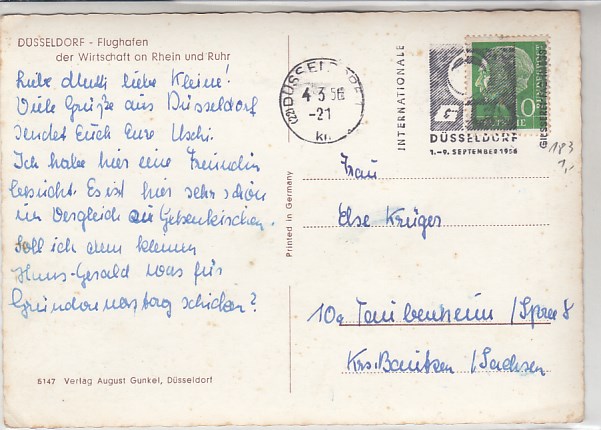 DÜSSELDORF - Flughafen
der Wirtschaft an Rhein und Ruhr
Liebe Mutti liebe Kleine!
Viele Grüße aus Düsseldorf
sendet Euch Eure Uschi.
Ich habe hier eine Freundin
besucht. Es ist hier sehr schön
im Vergleich zu Gelsenkirchen.
Soll ich dem kleinen
Hans-Gerald was für
Gründonnerstag schicken?
5147 Verlag August Gunkel, Düsseldorf
Printed in Germany
DÜSSELDORF
4 3 56
-21
INTERNATIONALE
DÜSSELDORF
1.-9. SEPTEMBER 1956
183
1,-
Frau
Else Krüger
10a Taubenheim / Spree 8
Krs. Bautzen / Sachsen